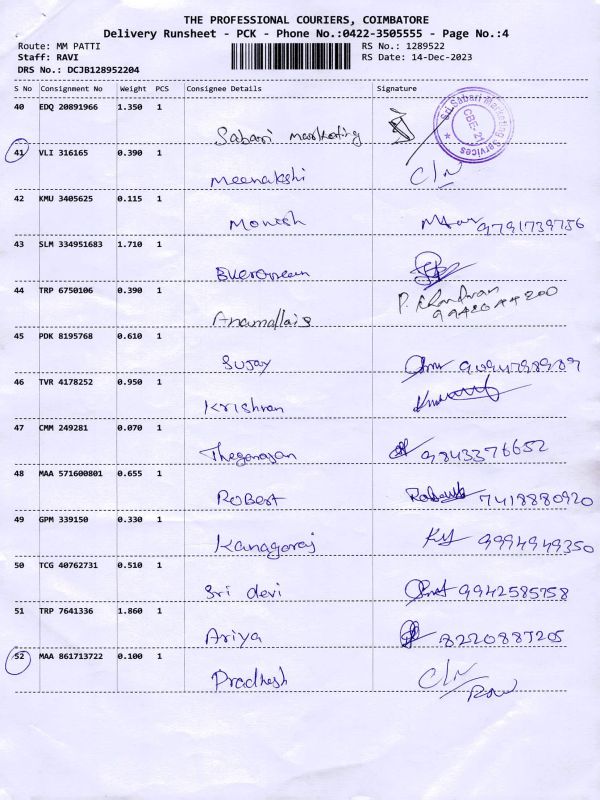 THE PROFESSIONAL COURIERS, COIMBATORE
Delivery Runsheet - PCK - Phone No.:0422-3505555 - Page No.:4
Route: MM PATTI RS No.: 1289522
Staff: RAVI RS Date: 14-Dec-2023
DRS No.: DCJB128952204
S No Consignment No Weight PCS Consignee Details Signature
40 EDQ 20891966 1.350 1
Sabari Marketing
Sri Sabari Marketing Services
41 VLI 316165 0.390 1
Meenakshi C/N
42 KMU 3405625 0.115 1
Monesh 9791739756
43 SLM 334951683 1.710 1
Evergreen
44 TRP 6750106 0.390 1
Anamallais
45 PDK 8195768 0.610 1
Sujay
46 TVR 4178252 0.950 1
Krishnan
47 CMM 249281 0.070 1
Thegarajan 9843376652
48 MAA 571600801 0.655 1
Robert 7418880920
49 GPM 339150 0.330 1
Kanagaraj 9994949350
50 TCG 40762731 0.510 1
Sri devi 9942585758
51 TRP 7641336 1.860 1
Ariya 8220883205
52 MAA 861713722 0.100 1
Pradhesh C/N